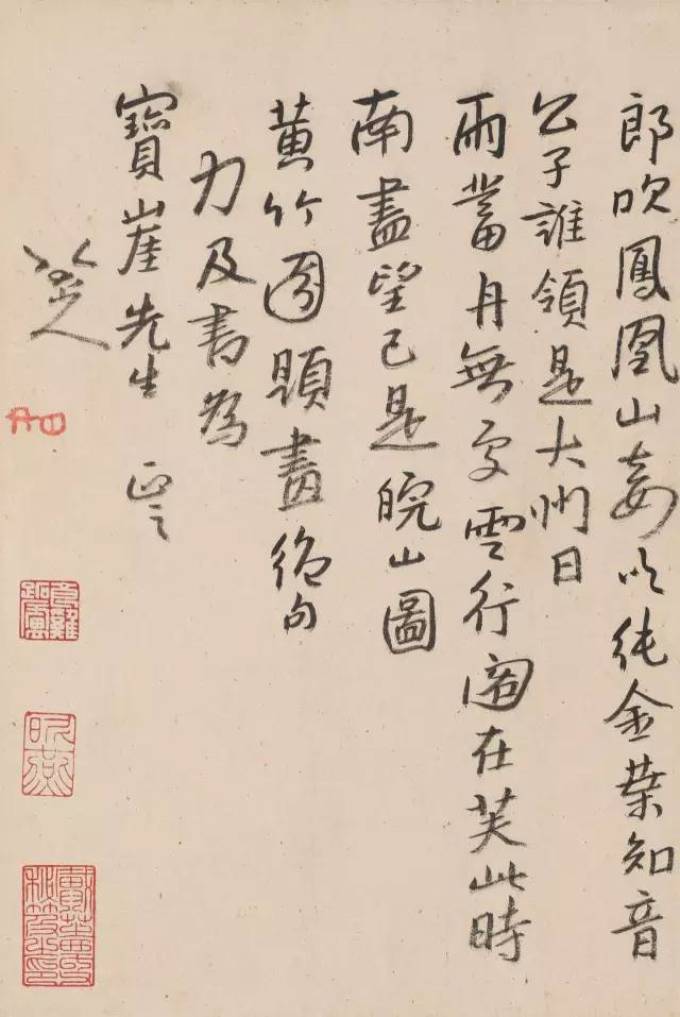 郎吹鳳凰山妾以純金葉知音
公子誰領是大州日
雨蓄丹無處雲行在芙此時
南盡望已是皖山圖
黃竹園題畫絕句
力及書為
寶崖先生 正之
八大山人